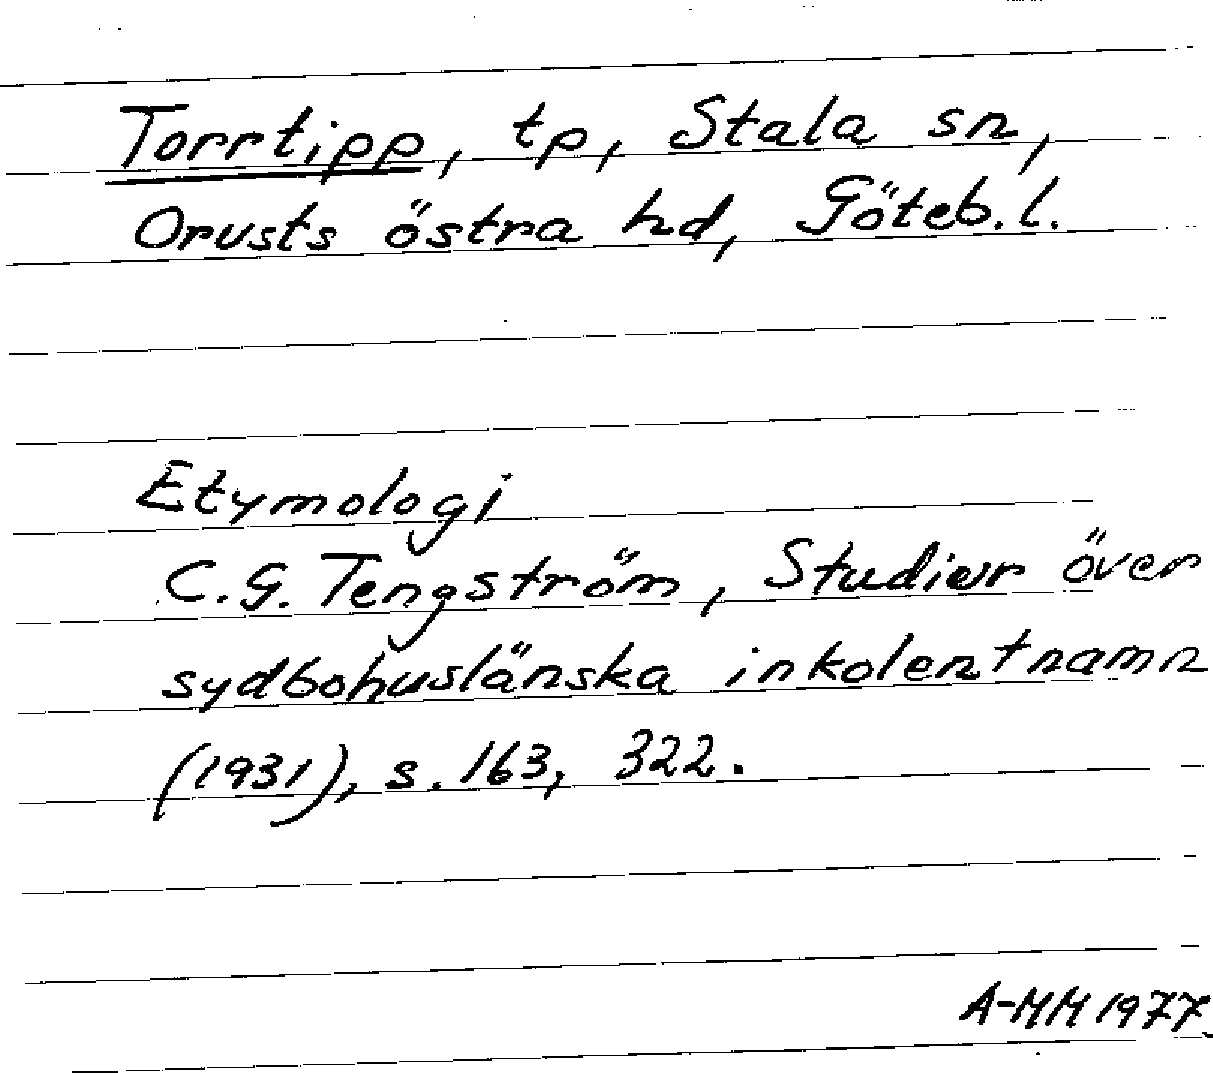 Torrtipp, tp, Stala sn,
Orusts östra hd, Göteb.l.
Etymologi
C.G. Tengström, Studier över
sydbohuslänska inkolentnamn
(1931), s. 163, 322.
A-MM 1977